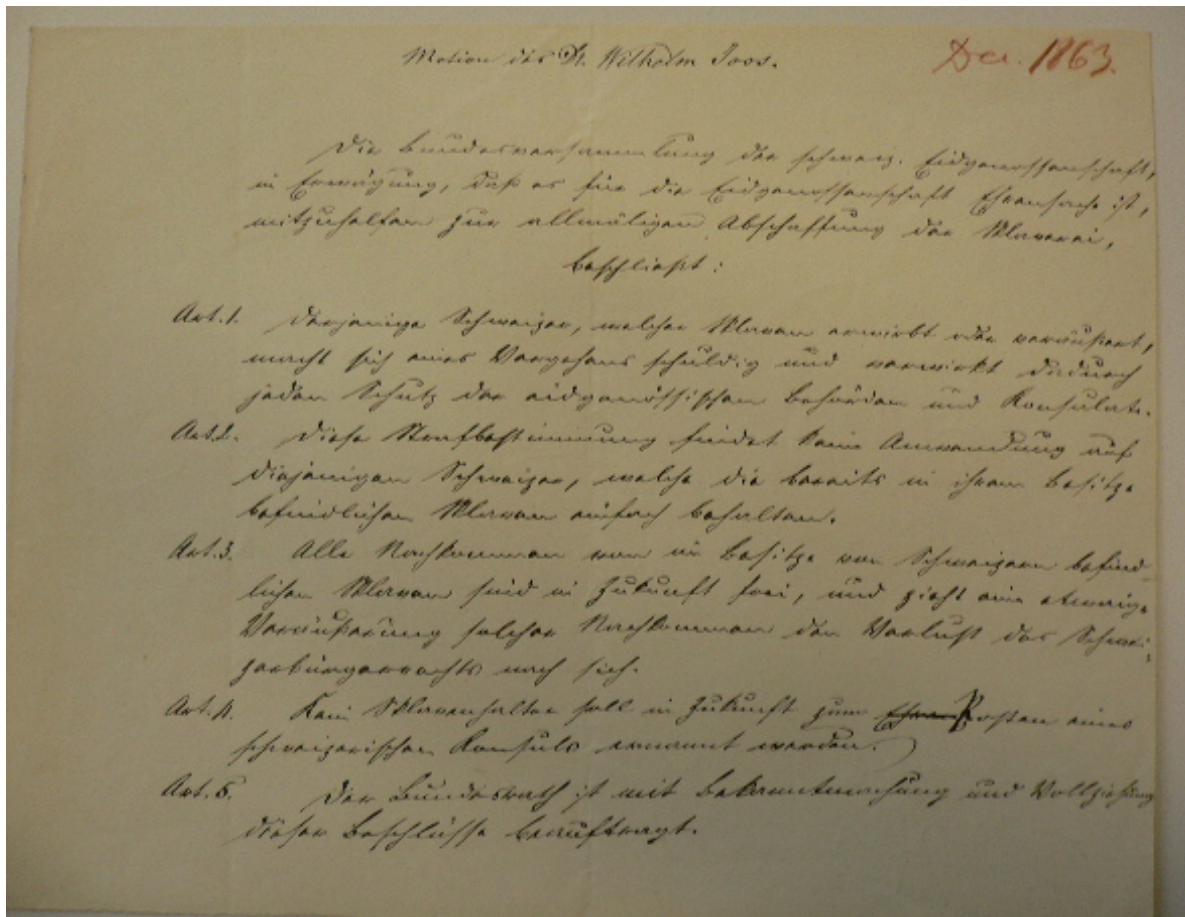 Motion des Dr. Wilhelm Joos.
Dec. 1863.
Die Bundesversammlung der schweiz. Eidgenossenschaft,
in Erwägung, daß es für die Eidgenossenschaft Ehrensache ist,
mitzuhelfen zur allmäligen Abschaffung der Sklaverei,
beschließt:
Art. 1. Derjenige Schweizer, welcher Sklaven erwirbt oder veräußert,
macht sich eines Vergehens schuldig und verwirkt dadurch
jeden Schutz der eidgenössischen Behörden und Konsulate.
Art. 2. Diese Strafbestimmung findet keine Anwendung auf
diejenigen Schweizer, welche die bereits in ihrem Besitze
befindlichen Sklaven einfach behalten.
Art. 3. Alle Nachkommen von im Besitze von Schweizern befind-
lichen Sklaven sind in Zukunft frei, und zieht eine etwaige
Veräußerung solcher Nachkommen den Verlust des Schwei-
zerbürgerrechts nach sich.
Art. 4. Kein Sklavenhalter soll in Zukunft zum Posten eines
schweizerischen Konsuls ernannt werden.
Art. 5. Der Bundesrath ist mit Bekanntmachung und Vollziehung
dieser Beschlüsse beauftragt.